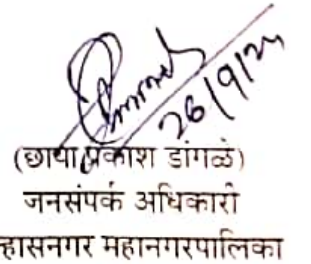 26/9/24
(छाया प्रकाश डांगळे)
जनसंपर्क अधिकारी
ल्हासनगर महानगरपालिका